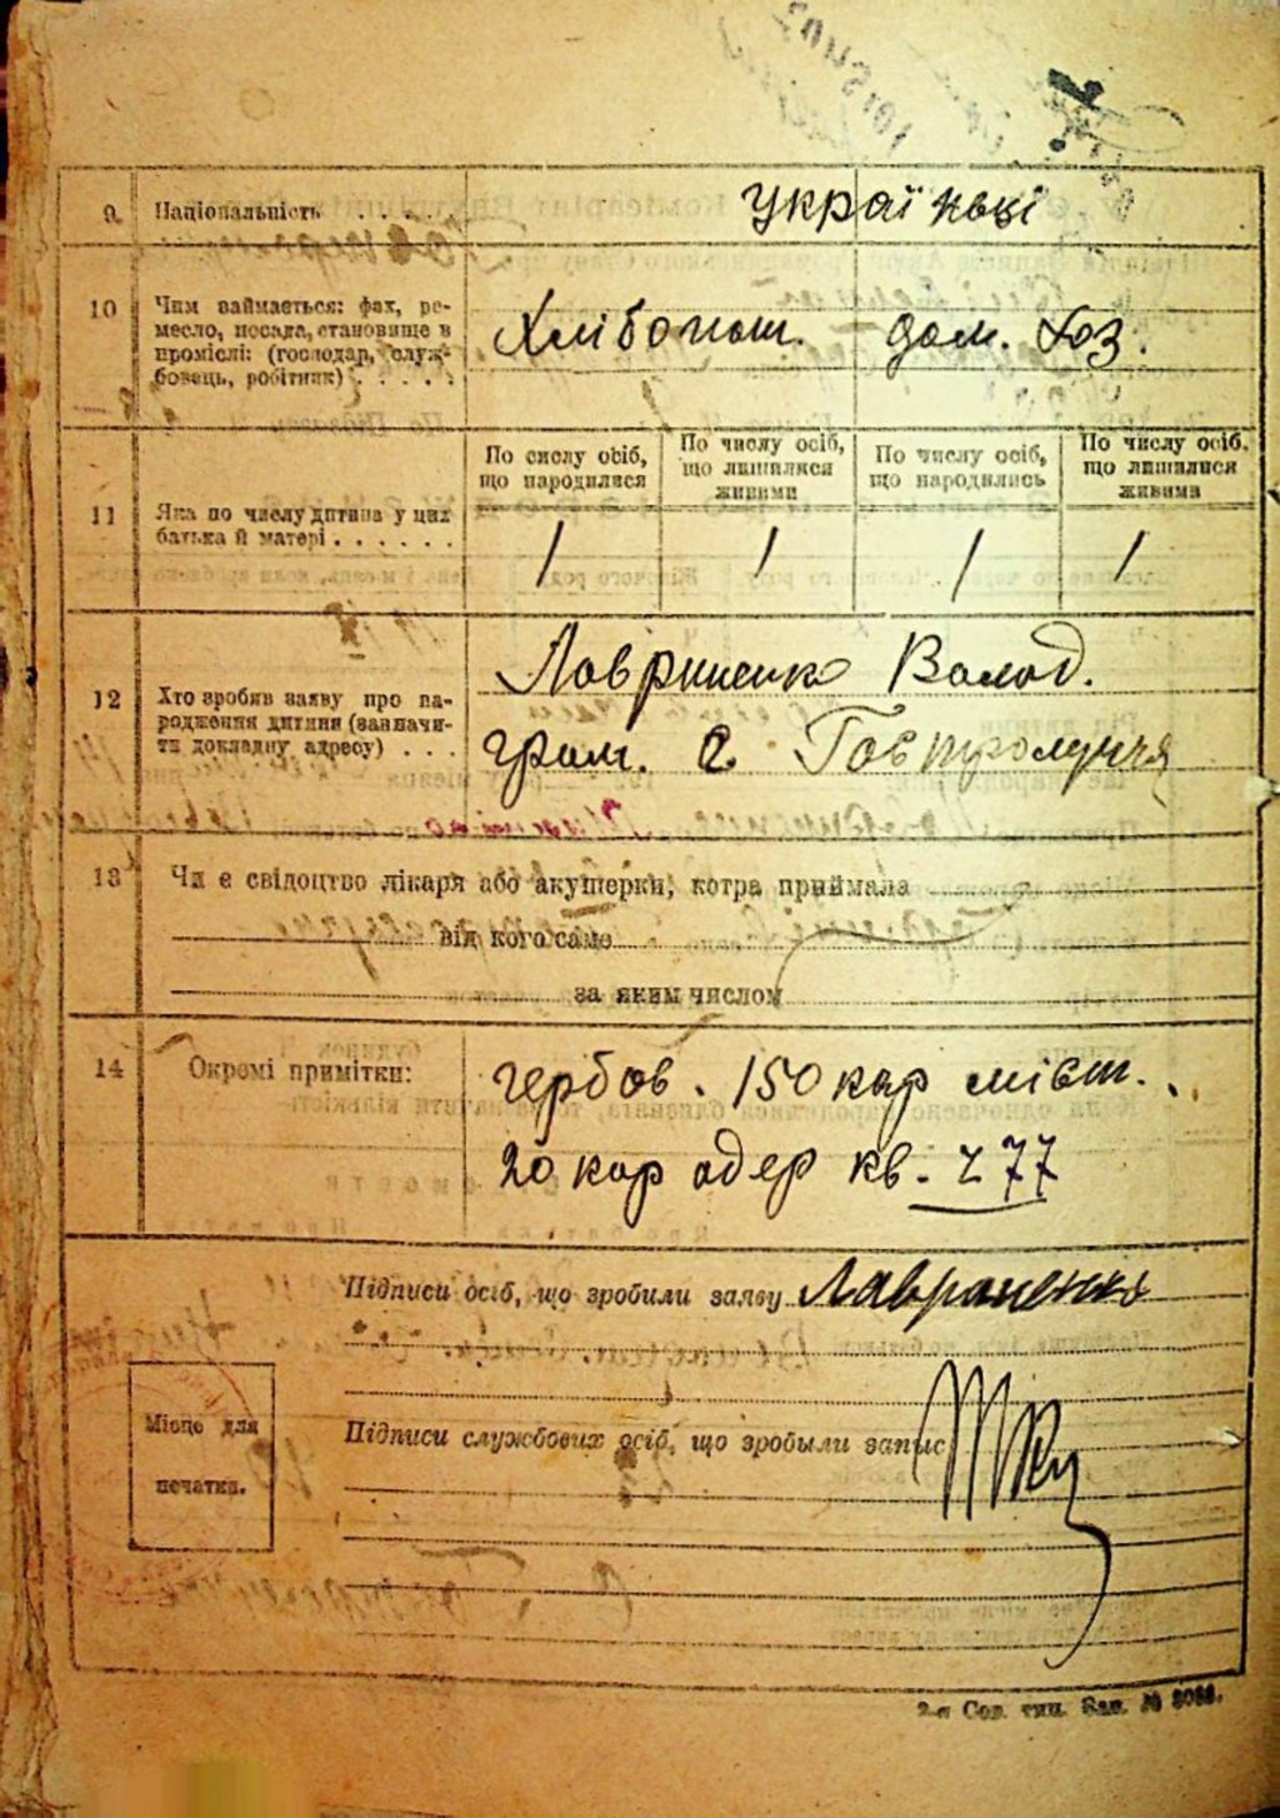 9. Національність . . . . . українці
10 Чим займається: фах, ре-
месло, посада, становище в
проміслі: (господар, служ-
бовець, робітник) . . . . .
Хлібопаш. дом. хоз.
По числу осіб, що народилися
По числу осіб, що лишилися живими
По числу осіб, що народились
По числу осіб, що лишилися живима
11 Яка по числу дитина у цих
батька й матері . . . . . .
1 1 1 1
12 Хто зробив заяву про на-
родження дитини (зазначи-
ти докладну адресу) . . .
Лавриненко Волод.
гром. с. Говтролуччя
13 Чи є свідоцтво лікаря або акушерки, котра приймала
від кого саме
за яким числом
14 Окремі примітки:
гербов. 150 кар міст.
20 кар одер кв. 477
Підписи осіб, що зробили заяву Лавраненко
Підписи службових осіб, що зробыли запис
Місце для
печатки.
2-я Сов. тип. Зак. №